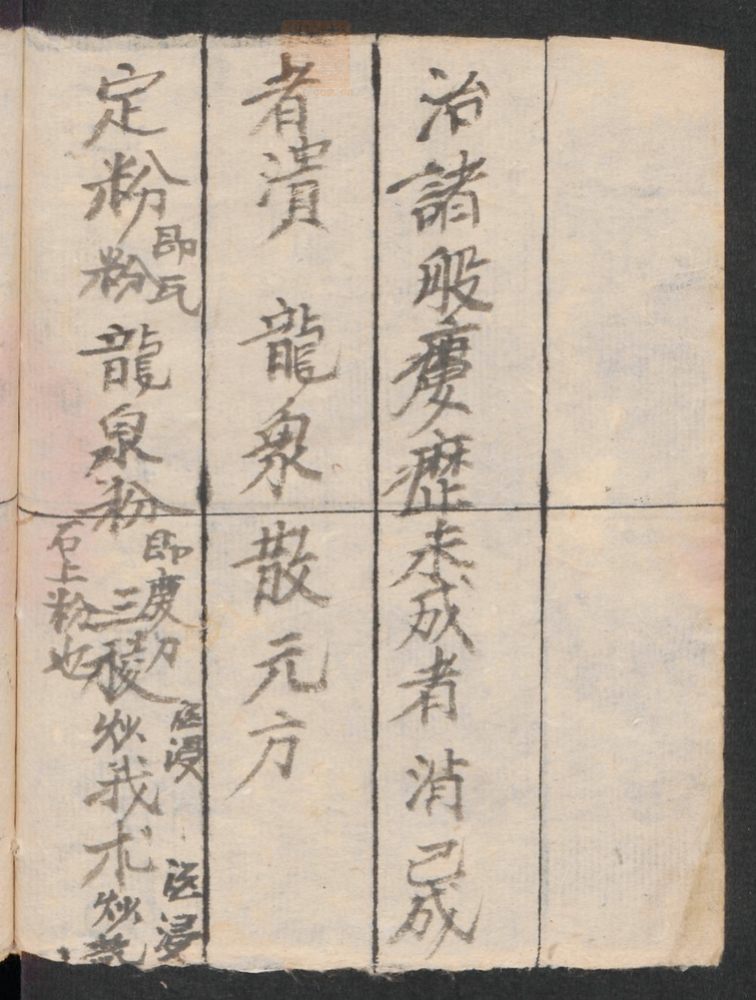 治諸般瘻癧未成者消已成
者潰 龍泉散元方
定粉即瓦粉龍泉粉即磨刀石上粉也三稜酒浸炒我朮酒浸炒乾